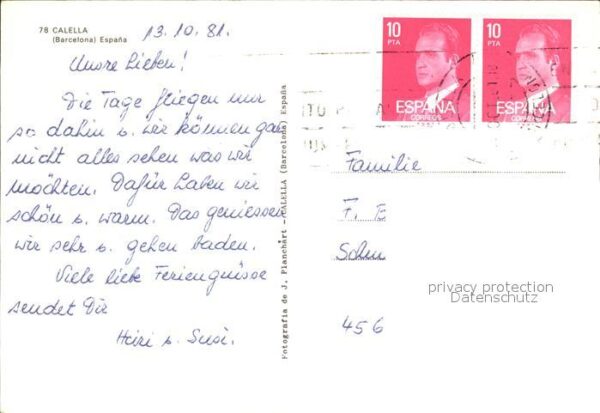 78 CALELLA
(Barcelona) España
13.10.81.
Unsre Lieben!
Die Tage fliegen nur
so dahin u. wir können gar
nicht alles sehen was wir
möchten. Dafür haben wir
schön u. warm. Das geniessen
wir sehr u. gehen baden.
Viele liebe Feriengrüsse
sendet Dir
Heiri u. Susi.
Fotografia de J. Planchart - CALELLA (Barcelona) España
10
PTA
ESPAÑA
CORREOS
10
PTA
ESPAÑA
CORREOS
Familie
F. E
Sohm
456
privacy protection
Datenschutz